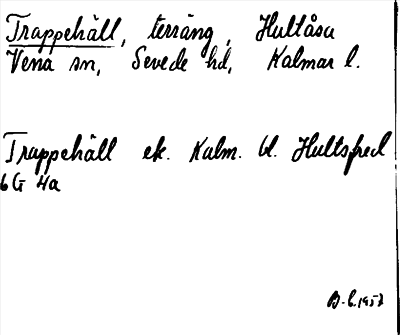 Trappehäll, terräng, Hultåsa
Vena sn, Sevede hd, Kalmar l.
Trappehäll ek. Kalm. bl. Hultsfred
6G 4a
B.L. 1957